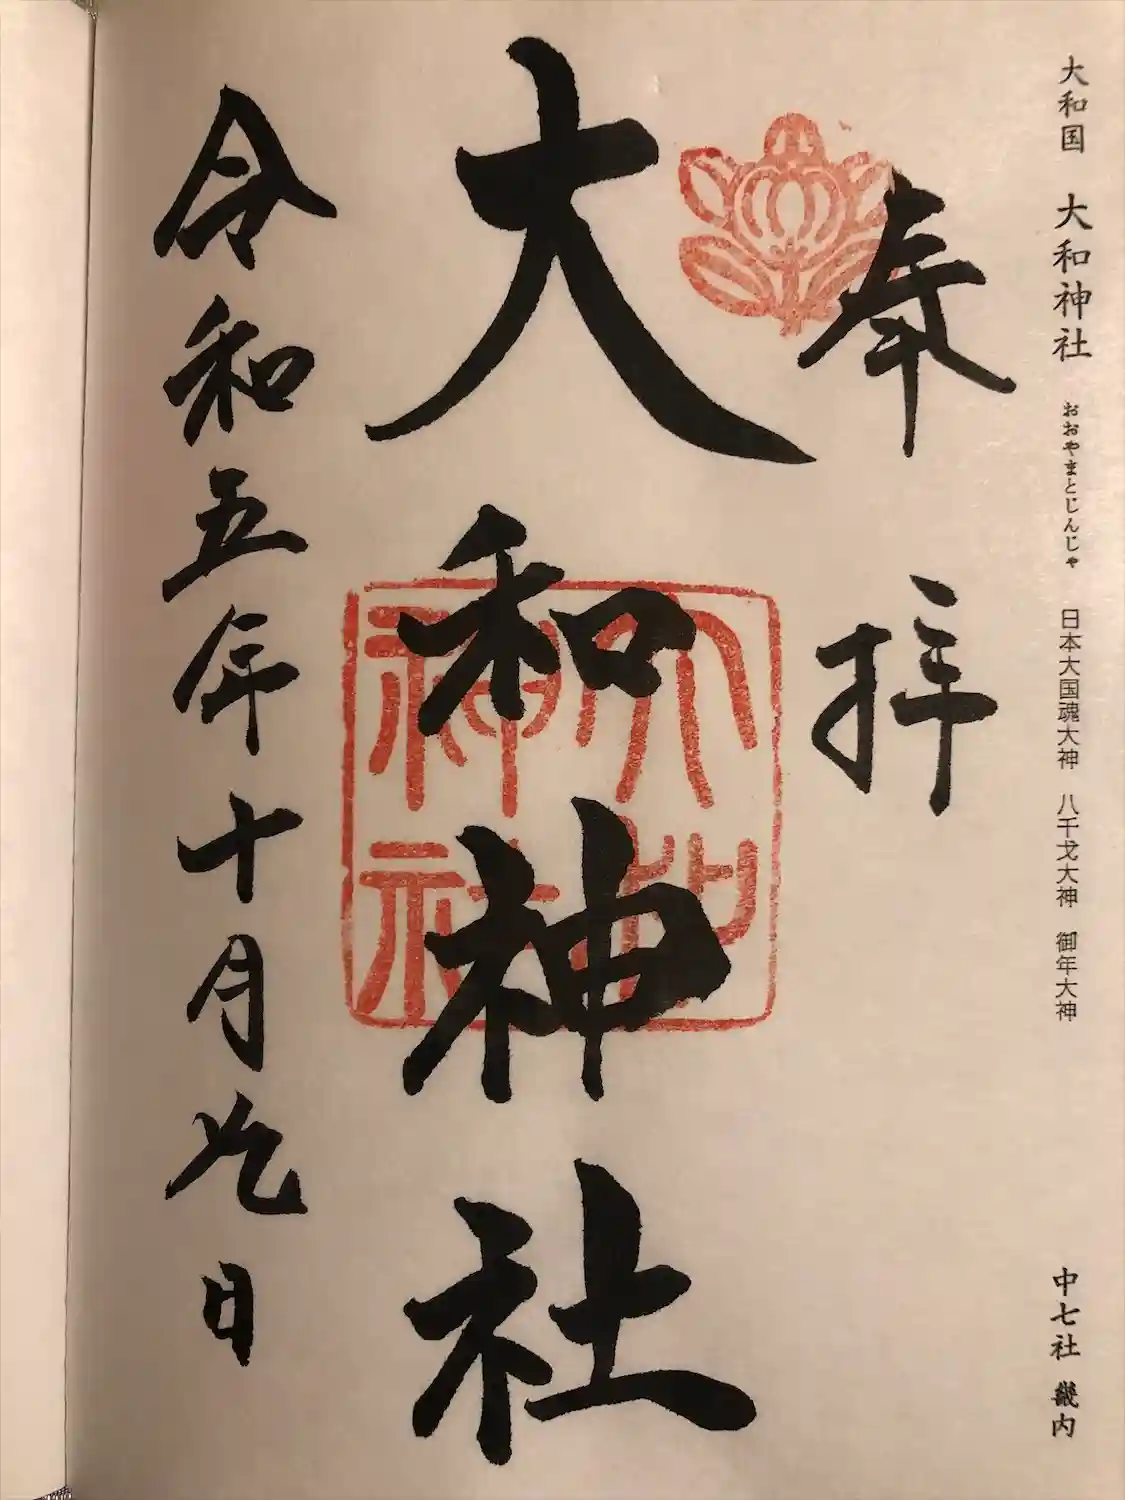 大和国 大和神社 おおやまとじんじゃ 日本大国魂大神 八千戈大神 御年大神 中七社 畿内
奉拝
大和神社
令和五年十月九日